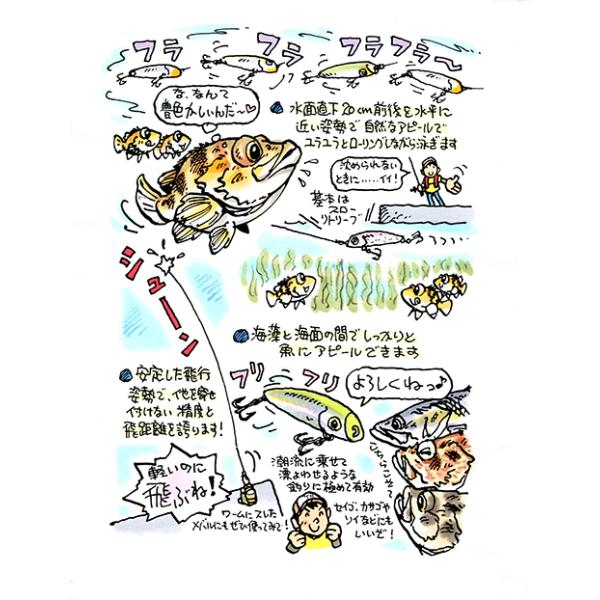 フラ フラ フラフラ〜
な、なんて
艶かしいんだ〜♡
水面直下20cm前後を水平に
近い姿勢で自然なアピールで
ユラユラとローリングしながら泳ぎます
沈められない
ときに……イイ!
基本は
スロー
リトリーブ
シューン
海藻と海面の間でしっかりと
魚にアピールできます
安定した飛行
姿勢で、他を寄せ
付けない精度と
飛距離を誇ります!
フリフリ
よろしくねっ♪
軽いのに
飛ぶね!
ワームにスレた
メバルにもぜひ使ってみて!
潮流に乗せて
漂よわせるような
釣りに極めて有効
こちらこそ
セイゴ、カサゴや
ソイなどにも
いいぞ!